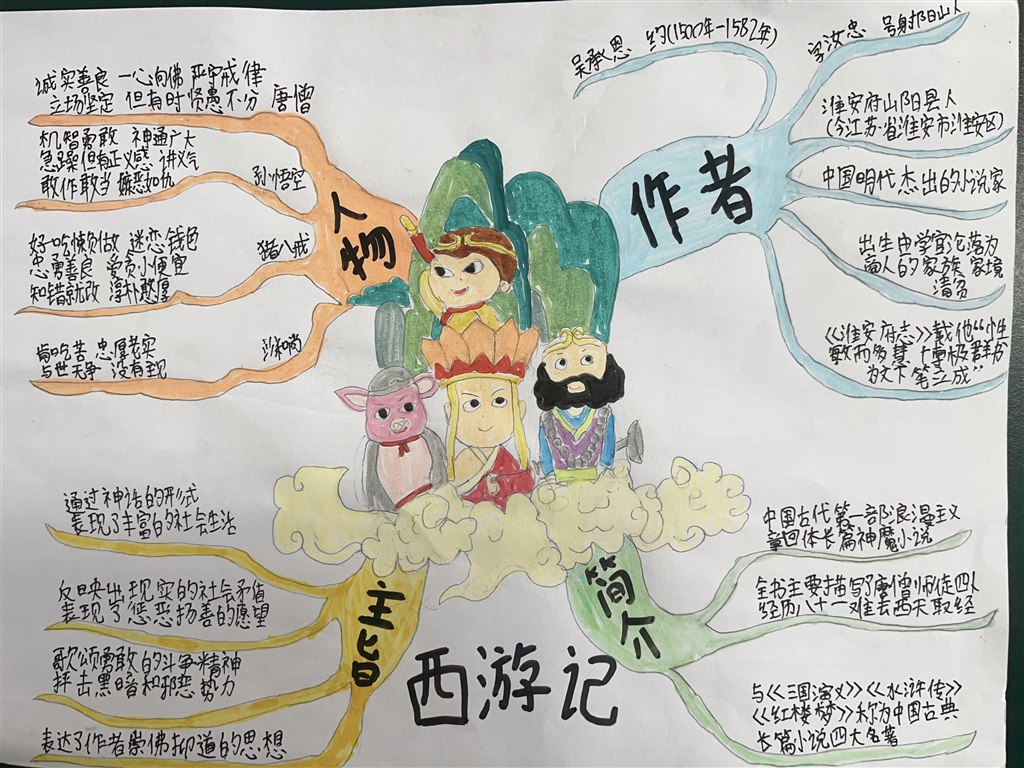 诚实善良 一心向佛 严守戒律
立场坚定 但有时贤愚不分 唐僧
机智勇敢 神通广大
急躁但有正义感 讲义气
敢作敢当 嫉恶如仇
孙悟空
好吃懒做 迷恋钱色
忠勇善良 爱贪小便宜
知错就改 淳朴憨厚
猪八戒
肯吃苦 忠厚老实
与世无争 没有主现
沙和尚
人物
作者
吴承恩 约(1500年-1582年)
字汝忠 号射阳山人
淮安府山阳县人
(今江苏省淮安市淮安区)
中国明代杰出的小说家
出生由学官沦落为
商人的家族 家境
清贫
《淮安府志》载他“性
敏而多慧 博极群书
为天下 笔立成”
通过神话的形式
表现了丰富的社会生活
反映出现实的社会矛盾
表现了惩恶扬善的愿望
歌颂勇敢的斗争精神
抨击黑暗和邪恶势力
表达了作者崇佛抑道的思想
主旨
西游记
简介
中国古代第一部浪漫主义
章回体长篇神魔小说
全书主要描写了唐僧师徒四人
经历八十一难去西天取经
与《三国演义》《水浒传》
《红楼梦》称为中国古典
长篇小说四大名著